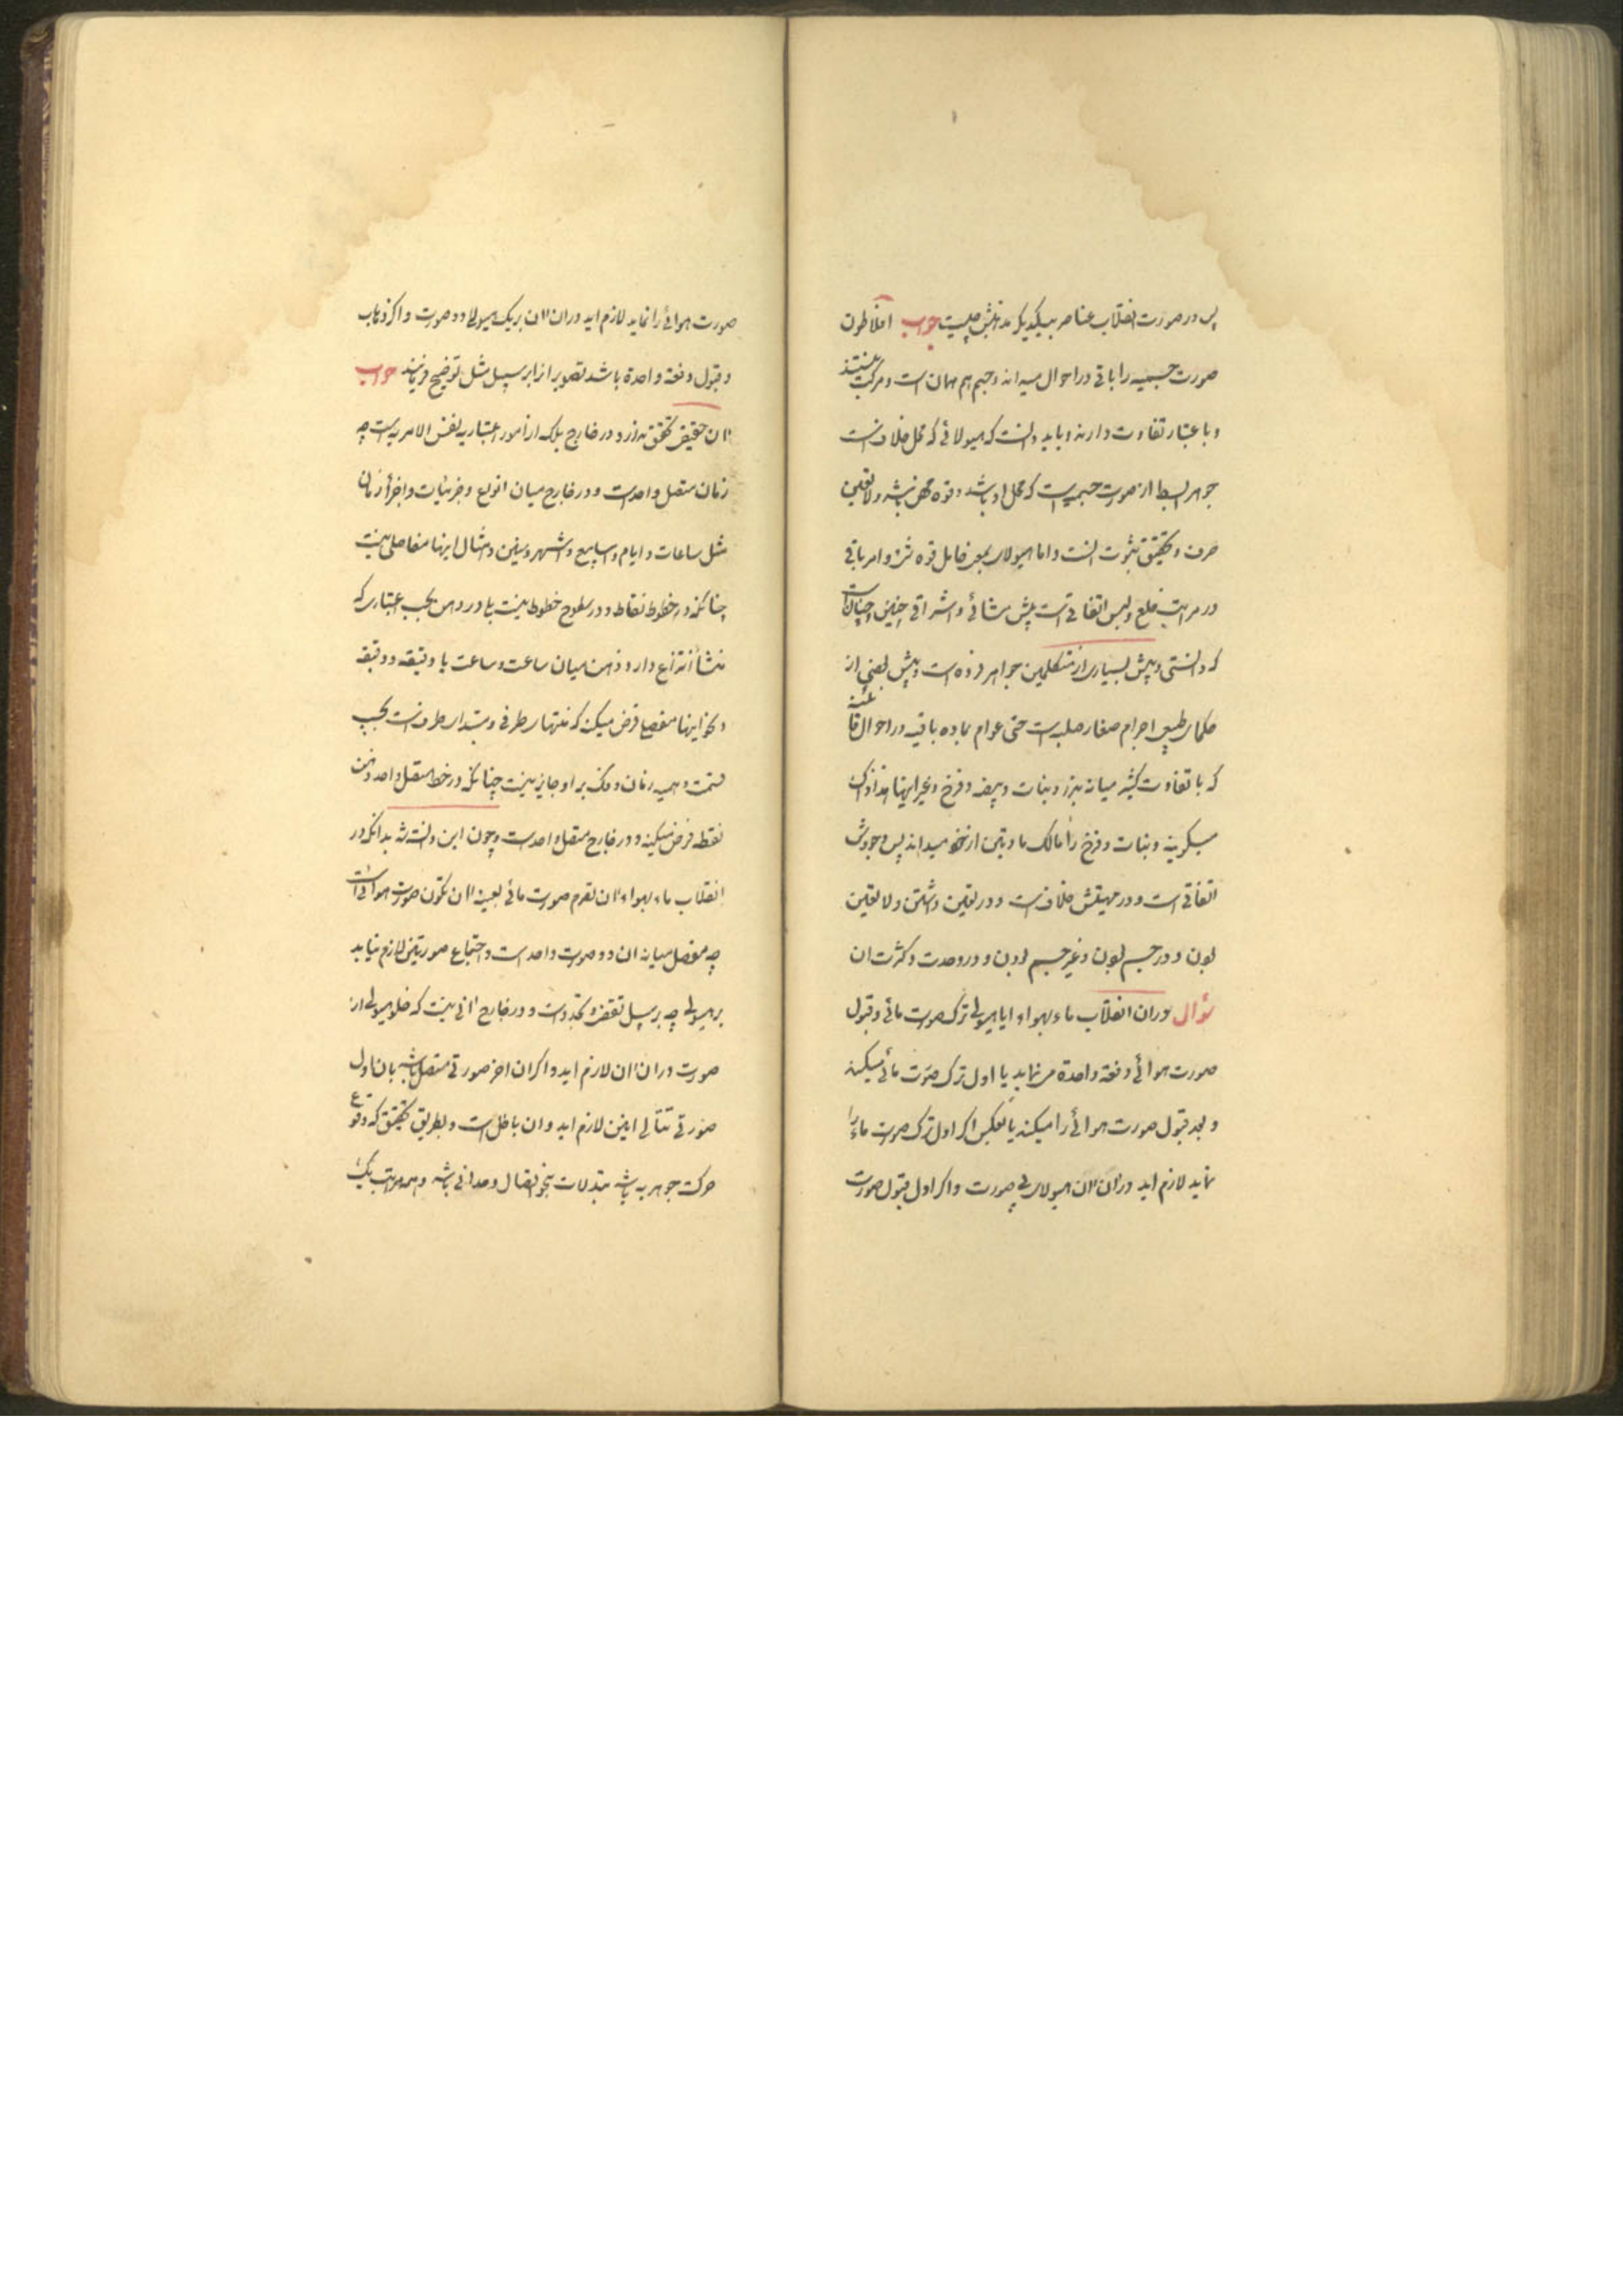 پس در صورت انقلاب عناصر بیکدیگر مذهبش چیست جواب افلاطون
صورت جسمیه را باقی در احوال میداند و جسم هم همان است و مرکب نیستند
و باعتبار تفاوت دارند و باید دانست که هیولائی که محل خلاف است
جوهر ابسط از صورت جسمیه است که محل او باشد و قوه محض باشد و لا تعین
صرف و تحقیق ثبوت است و اما هیولای بمعنی قابل قوه شئ و امر باقی
در مراتب خلع و لبس اتفاقی است پیش مشائی و اشراقی چنین و چنان است
که دانستی و پیش بسیاری از متکلمین جواهر فرده است و پیش بعضی از
حکمای طبیعی اجرام صغار صلبه است حتی عوام بماده باقیه در احوال قائلند
که با تفاوت کثیر میانه بزر و نبات و بیضه و فرخ و غیر اینها
میگویند و نبات و فرخ را مالک مادتین از تخم میدانند پس وجودش
اتفاقی است و در مهیتش خلاف است و در تعین داشتن و لا تعین
بودن و در جسم بودن و غیر جسم بودن و در وحدت و کثرت ان
سؤال در ان انقلاب ماء بهواء ایا هیولی ترک صورت مائی و قبول
صورت هوائی دفعة واحدة می نماید یا اول ترک صورت مائی میکند
و بعد قبول صورت هوائی را میکند یا بعکس اگر اول ترک صورت ماء را
نماید لازم اید در ان ان هیولای بی صورت و اگر اول قبول صورت
صورت هوائی را نماید لازم اید در ان ان بر یک هیولا دو صورت و اگر ذهاب
و قبول دفعة واحدة باشد تصویر انرا بر سبیل مثل توضیح فرمایند جواب
ان حقیقی تحقق ندارد در خارج بلکه از امور اعتباریه نفس الامریه است چه
زمان متصل واحد است و در خارج میان انواع و جزئیات و اجزأ زمان
مثل ساعات و ایام و اسابیع و اشهر و سنین و امثال اینها مفاصلی نیست
چنانکه در خطوط نقاط و در سطوح خطوط نیست بلی در ذهن بحسب اعتباری که
منشأ انتزاع دارد ذهن میان ساعت و ساعت یا دقیقه و دقیقه
و نحو اینها مفصلی فرض میکند که منتهای طرفی و مبتدای طرف است بحسب
قسمت وهمیه زمان و فک بر او جایز نیست چنانکه در خط متصل واحد ذهن
نقطه فرض میکند و در خارج متصل واحد است و چون این دانسته شد بدانکه در
انقلاب ماء بهواء ان تصرم صورت مائی بعینه ان تکون صورت هوائی است
چه مفصل میانه ان دو صورت واحد است و اجتماع صورتین لازم نیاید
بر هیولی چه بر سبیل تقضی و تجدد است و در خارج انی نیست که خلو هیولی از
صورت در ان ان لازم اید و اگر ان اخر صورتی متصل باشد بان اول
صورتی تتالی انین لازم اید و ان باطل است و بطریق تحقیق که وقوع
حرکت جوهریه باشد تبدلات بنحو اتصال وحدانی باشد و همه مراتب یک